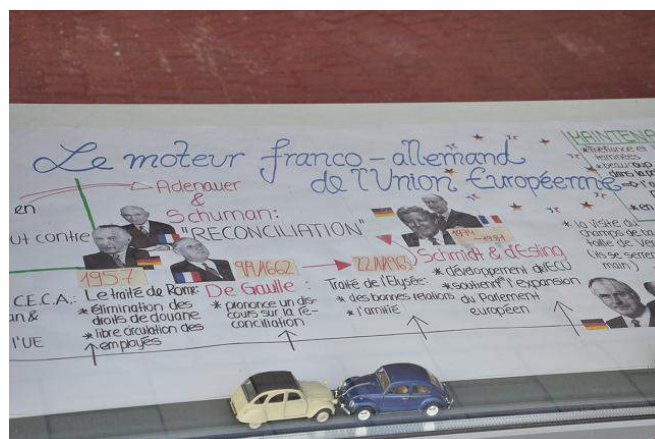 Le moteur franco-allemand
de l'Union Européenne
en
ut contre
C.E.C.A.:
an &
l'UE
Adenauer
&
Schuman:
"RECONCILIATION"
1957
Le traité de Rome:
* élimination des
droits de douane
* libre circulation des
employés
De Gaulle:
* prononce un dis-
cours sur la ré-
conciliation
22.1.1963
Traité de l'Elysée:
* des bonnes relations
* l'amitié
1974
-1981
Schmidt & d'Esting
* développement de l'ECU
du Parlement
européen
MAINTENA
* Méfiance et
* beaucoup
dans la po
* en
* la visite du
champs de ba
taille de Ver
(ils se serrent
main)